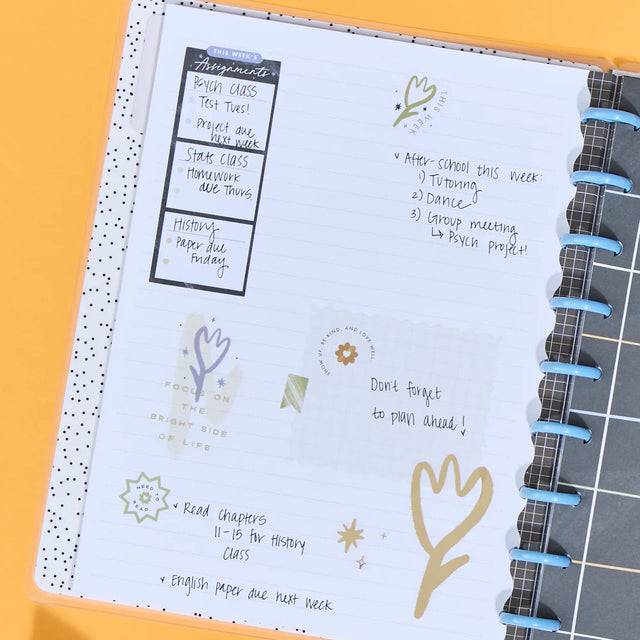 THIS WEEK'S
Assignments
Psych Class
Test Tues!
Project due
next week
Stats Class
Homework
due Thurs.
History
Paper due
Friday
THIS WEEK
After-school this week:
1) Tutoring
2) Dance
3) Group meeting
↳ Psych project!
SHOW UP, BE KIND, AND LOVE WELL
Don't forget
to plan ahead!
FOCUS ON
THE
BRIGHT SIDE
OF LIFE
NEED TO
READ
Read Chapters
11-15 for History
Class
English paper due next week